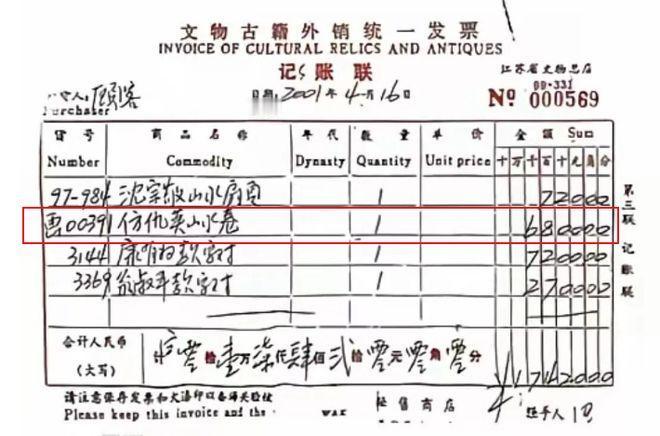 文物古籍外销统一发票
INVOICE OF CULTURAL RELICS AND ANTIQUES
记账联
江苏省文物总店
00-331
购货人: 顾客 日期: 2001年4月16日 № 000569
Purchaser
货号 商品名称 年代 数量 单价 金额 Sum
Number Commodity Dynasty Quantity Unit price 十万千百十元角分
97-984 沈宗敬山水扇页 1 72000
画00391 仿仇英山水卷 1 680000
3144 康有为款字对 1 720000
3369 翁叔平款字对 1 270000
第三联 记账联
合计人民币
(大写) 零拾壹万柒仟肆佰贰拾零元零角零分 ¥1742000
请注意保存发票和火漆印以备海关查验
Please keep this invoice and the wax
经售商店 经手人